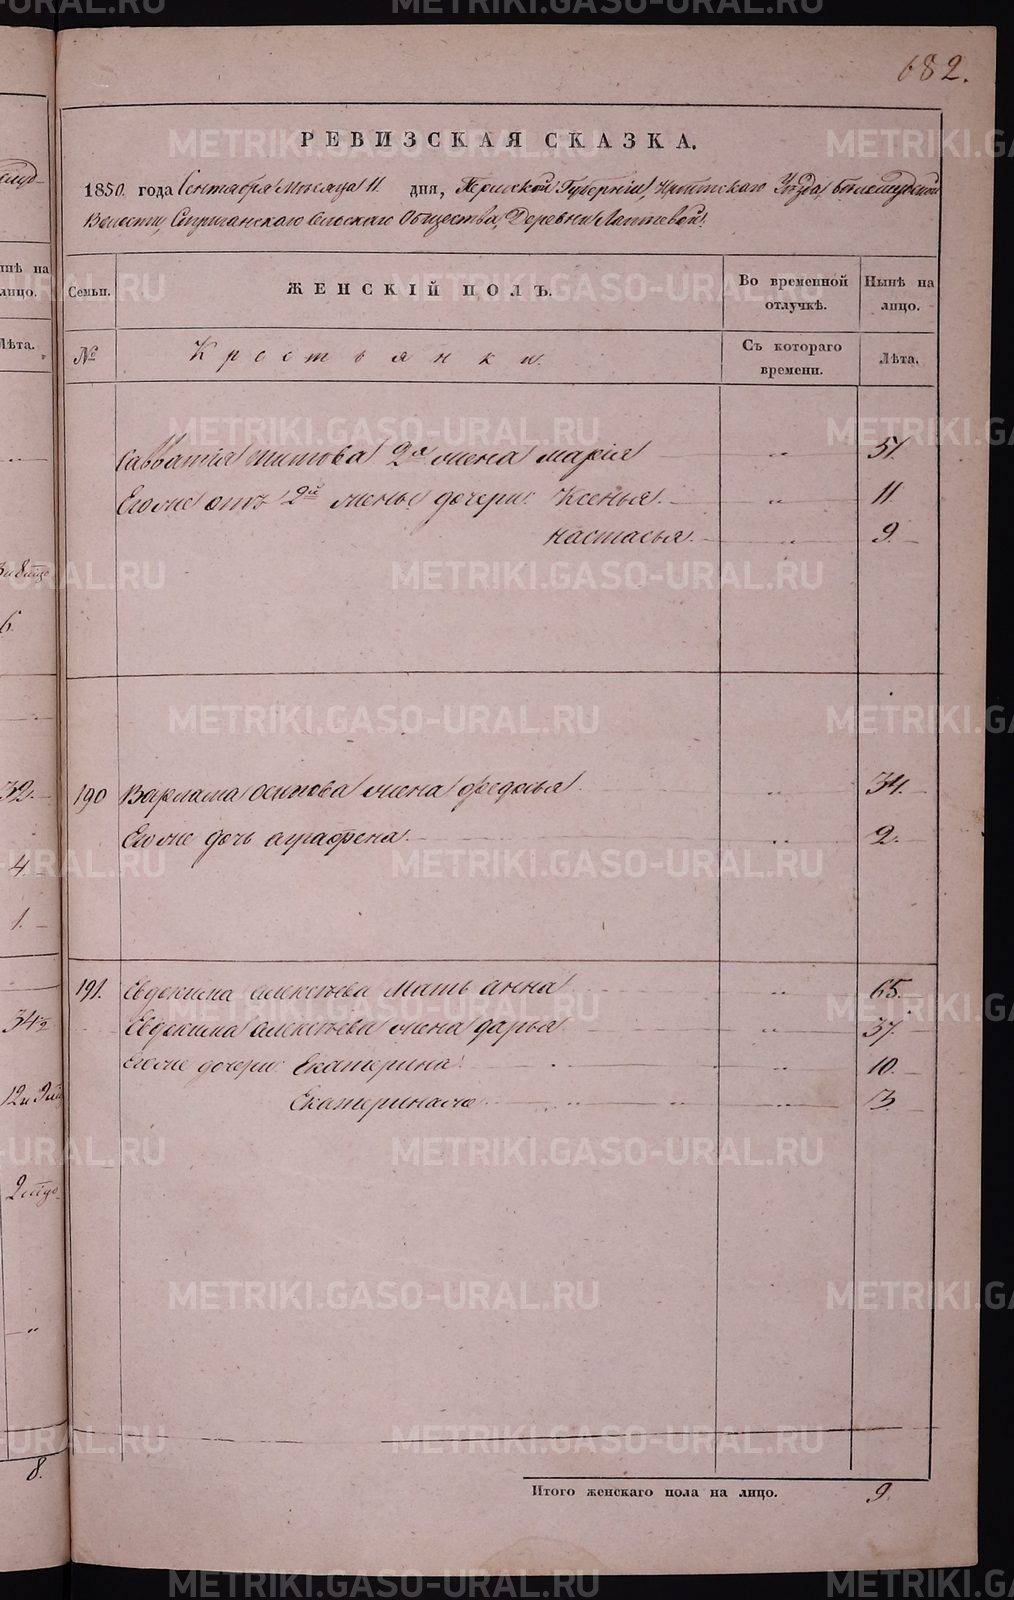 682.
РЕВИЗСКАЯ СКАЗКА.
1850. года Сентября Месяца 11. дня, Пермской Губерніи, Ирбитскаго Уѣзда,
Волости, Сельскаго Общества, Деревни Лаптевой.
Семьи. ЖЕНСКІЙ ПОЛЪ. Во временной отлучкѣ. Нынѣ на лицо.
№ Крестьянки. Съ котораго времени. Лѣта.
Савватія Титова 2я жена Марія „ 51.
Егоже отъ 2й жены дочери: Ксенья. „ 11
Настасья. „ 9.
190 Варлама Осипова жена Федосья „ 34.
Егоже дочь Аграфена. „ 2.
191. Евдокима Алексѣева мать Анна „ 65.
Евдокима Алексѣева жена Дарья „ 37.
Егоже дочери: Екатерина „ 10.
Екатерина же „ 3.
Итого женскаго пола на лицо. 9.
нынѣ на лицо.
Лѣта.
6.
32.
4.
1.
34½
8.
METRIKI.GASO-URAL.RU